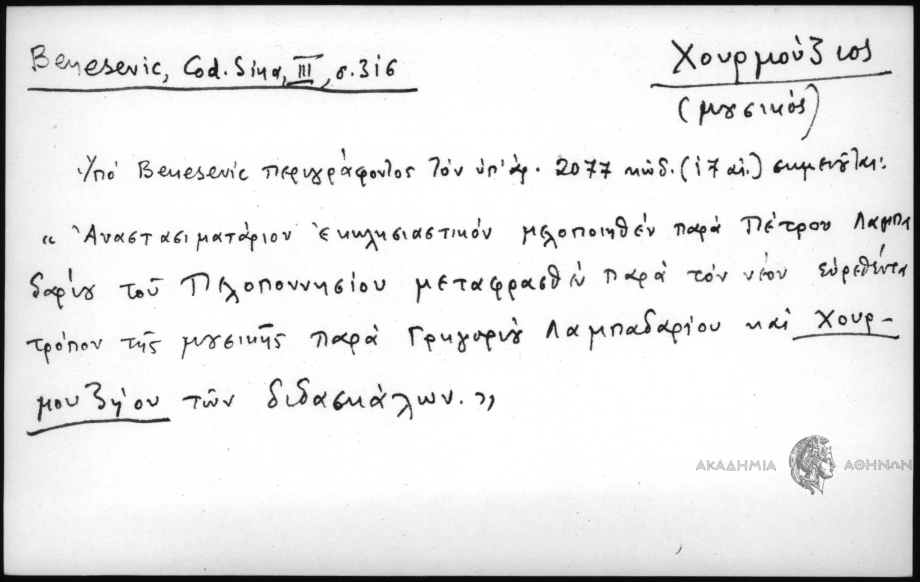 Benesevic, Cod. Sina, III, σ. 316
Χουρμούζιος
(μουσικός)
Ὑπό Benesevic περιγράφοντος τόν ὑπ' ἀρ. 2077 κώδ. (17 αἰ.) σημειοῦται:
« Ἀναστασιματάριον ἐκκλησιαστικόν μελοποιηθέν παρά Πέτρου Λαμπα
δαρίου τοῦ Πελοποννησίου μεταφρασθέν παρά τόν νέον εὑρεθέντα
τρόπον τῆς μουσικῆς παρά Γρηγορίου Λαμπαδαρίου καί Χουρ-
μουζίου τῶν διδασκάλων. »
ΑΚΑΔΗΜΙΑ ΑΘΗΝΩΝ